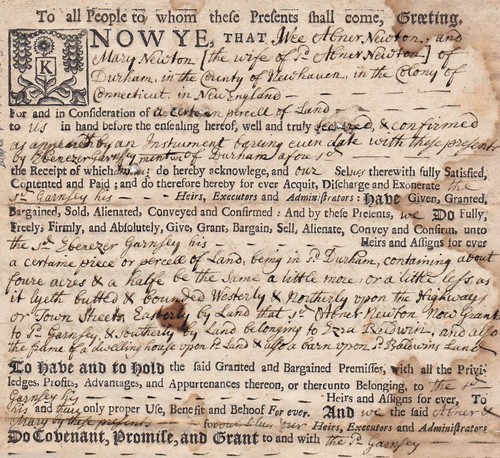 To all People to whom these Presents shall come, Greeting.
K
NOW YE, THAT Wee Abner Newton, and
Mary Newton [the wife of sd. Abner Newton] of
Durham, in the County of Newhaven, in the Colony of
Connecticut, in New England
For and in Consideration of a certain percell of Land
to us in hand before the ensealing hereof, well and truly & confirmed
as appeareth by an Instrument baring even date with these presents
by Ebenezer Garnsey of Durham afousd
the Receipt of which do hereby acknowlege, and our Selves therewith fully Satisfied,
Contented and Paid; and do therefore hereby for ever Acquit, Discharge and Exonerate the
sd. Garnsey his Heirs, Executors and Administrators: Have Given, Granted,
Bargained, Sold, Alienated, Conveyed and Confirmed: And by these Presents, we Do Fully,
Freely, Firmly, and Absolutely, Give, Grant, Bargain, Sell, Alienate, Convey and Confirm, unto
the sd. Ebenezer Garnsey his Heirs and Assigns for ever
a certaine piece or percell of Land, being in sd. Durham, containing about
foure acres & a halfe be the Same a little more, or a little less as
it lyeth butted & bounded Westerly & Northerly upon the Highways
or Town Streets, Easterly by Land that sd. Abner Newton Now Grant
to sd. Garnsey, & Southerly by Land belonging to Ezra Baldwin, and also
the frame of a dwaling house upon sd. Land & also a barn upon sd. Baldwins Land
To Have and to Hold the said Granted and Bargained Premisses, with all the Privi-
ledges, Profits, Advantages, and Appurtenances thereon, or thereunto Belonging, to the sd.
Garnsey his Heirs and Assigns for ever, To
his and their only proper Use, Benefit and Behoof For ever. And we the said Abner &
Mary by these presents for our Heirs, Executors and Administrators
Do Covenant, Promise, and Grant to and with the sd. Garnsey